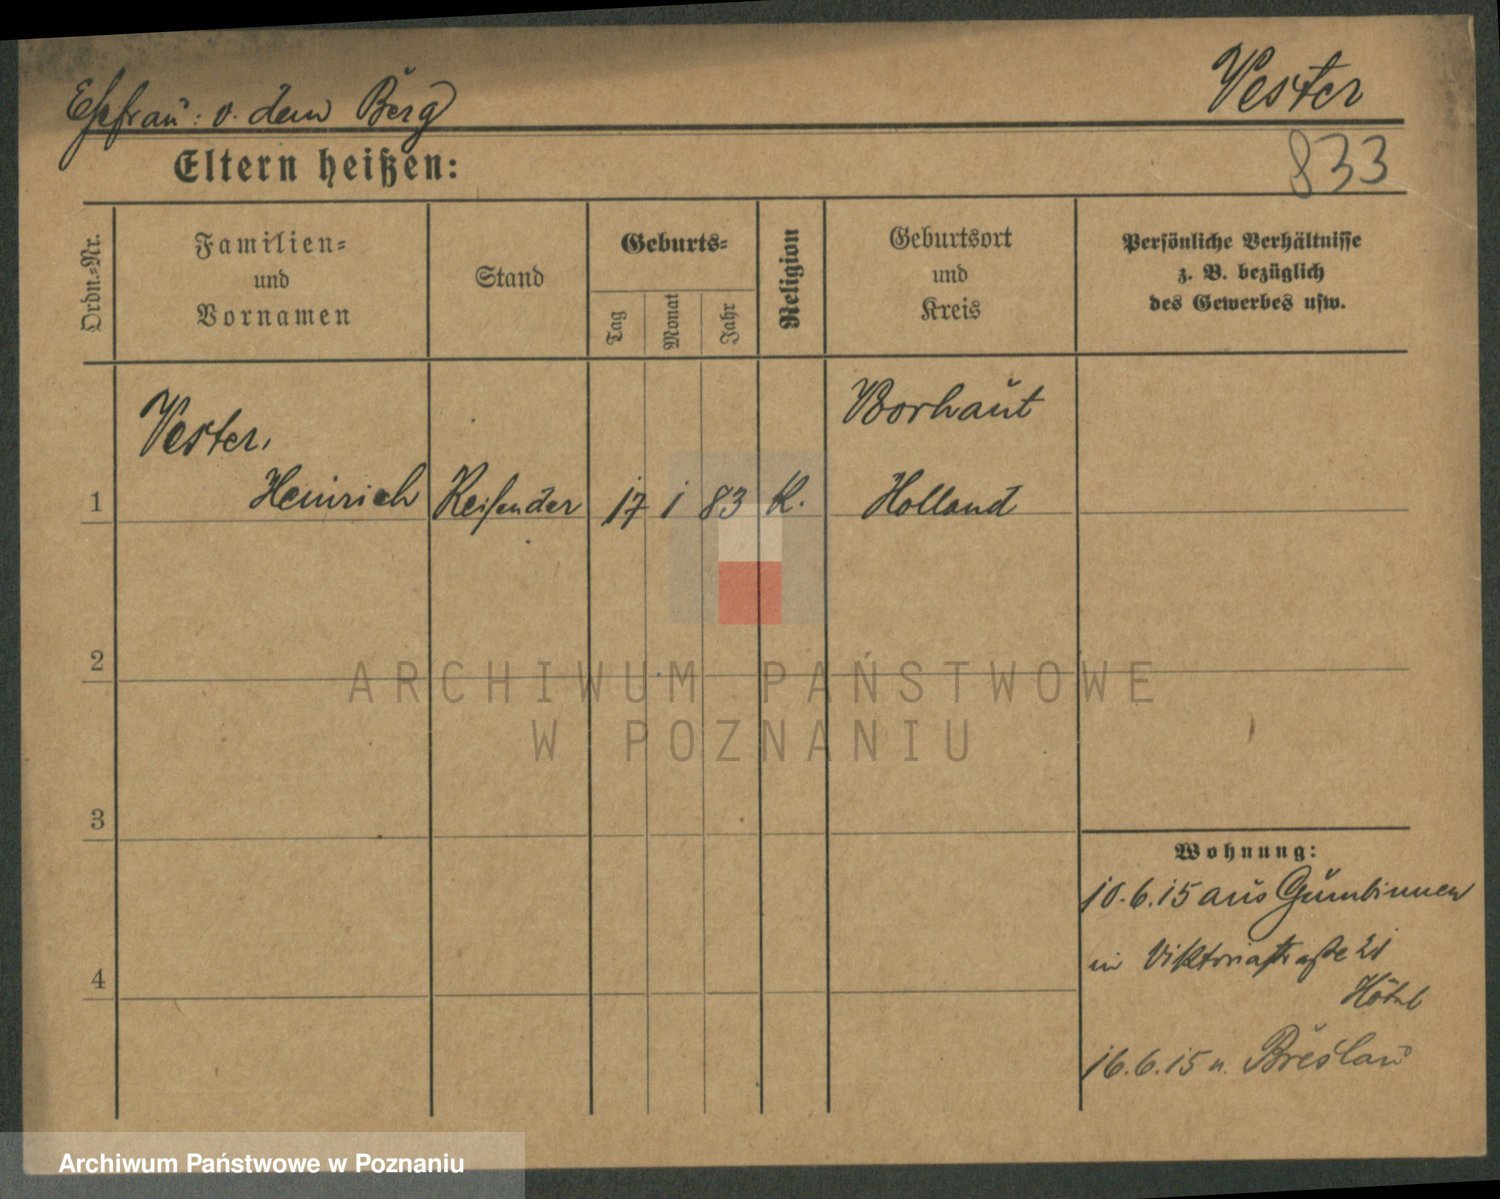 Ehefrau: v. dem Berg
Vester
833
Eltern heißen:
Ordn.=Nr.
Familien=
und
Vornamen
Stand
Geburts=
Tag
Monat
Jahr
Religion
Geburtsort
und
Kreis
Persönliche Verhältnisse
z. B. bezüglich
des Gewerbes usw.
Vester,
Borhaut
1 Heinrich Reisender 17 1 83 K. Holland
2
3
4
Wohnung:
10.6.15 aus Gumbinnen
in Viktoriastraße 21
Hôtel
16.6.15 n. Breslau
ARCHIWUM PAŃSTWOWE
W POZNANIU
Archiwum Państwowe w Poznaniu